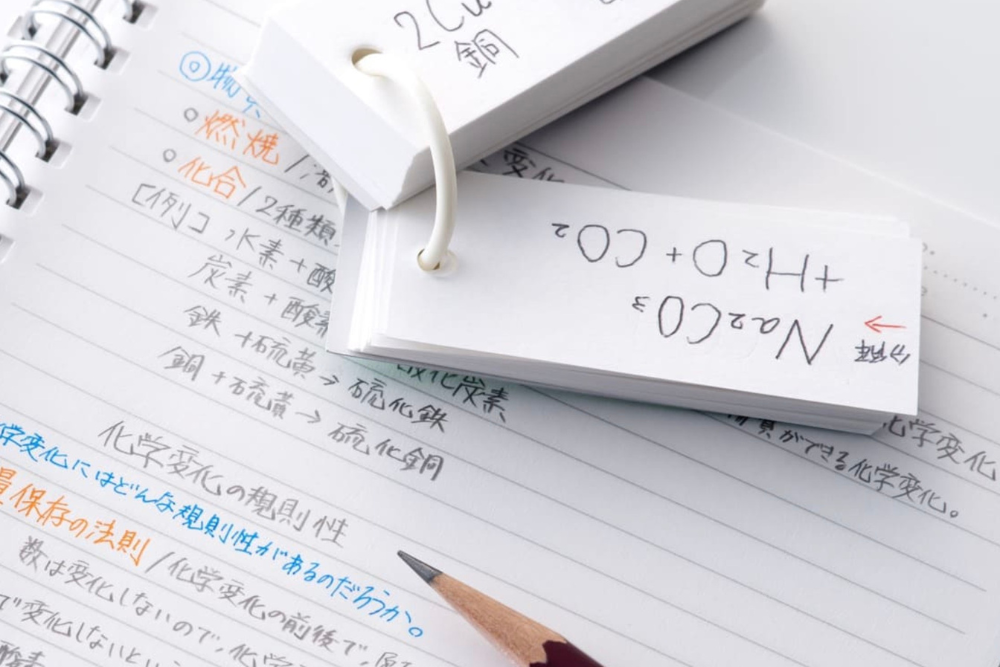 2Cu
銅
分解
Na₂CO₃
+H₂O+CO₂
◎物
○燃焼/
○化合/2種類
[例]水素+酸
炭素+酸素
化炭素
鉄+硫黄→硫化鉄
銅+硫黄→硫化銅
化学変化
ができる化学変化。
化学変化の規則性
学変化にはどんな規則性があるのだろうか。
量保存の法則/化学変化の前後で、
数は変化しないので、化学
で変化しないとい
酸素
変化